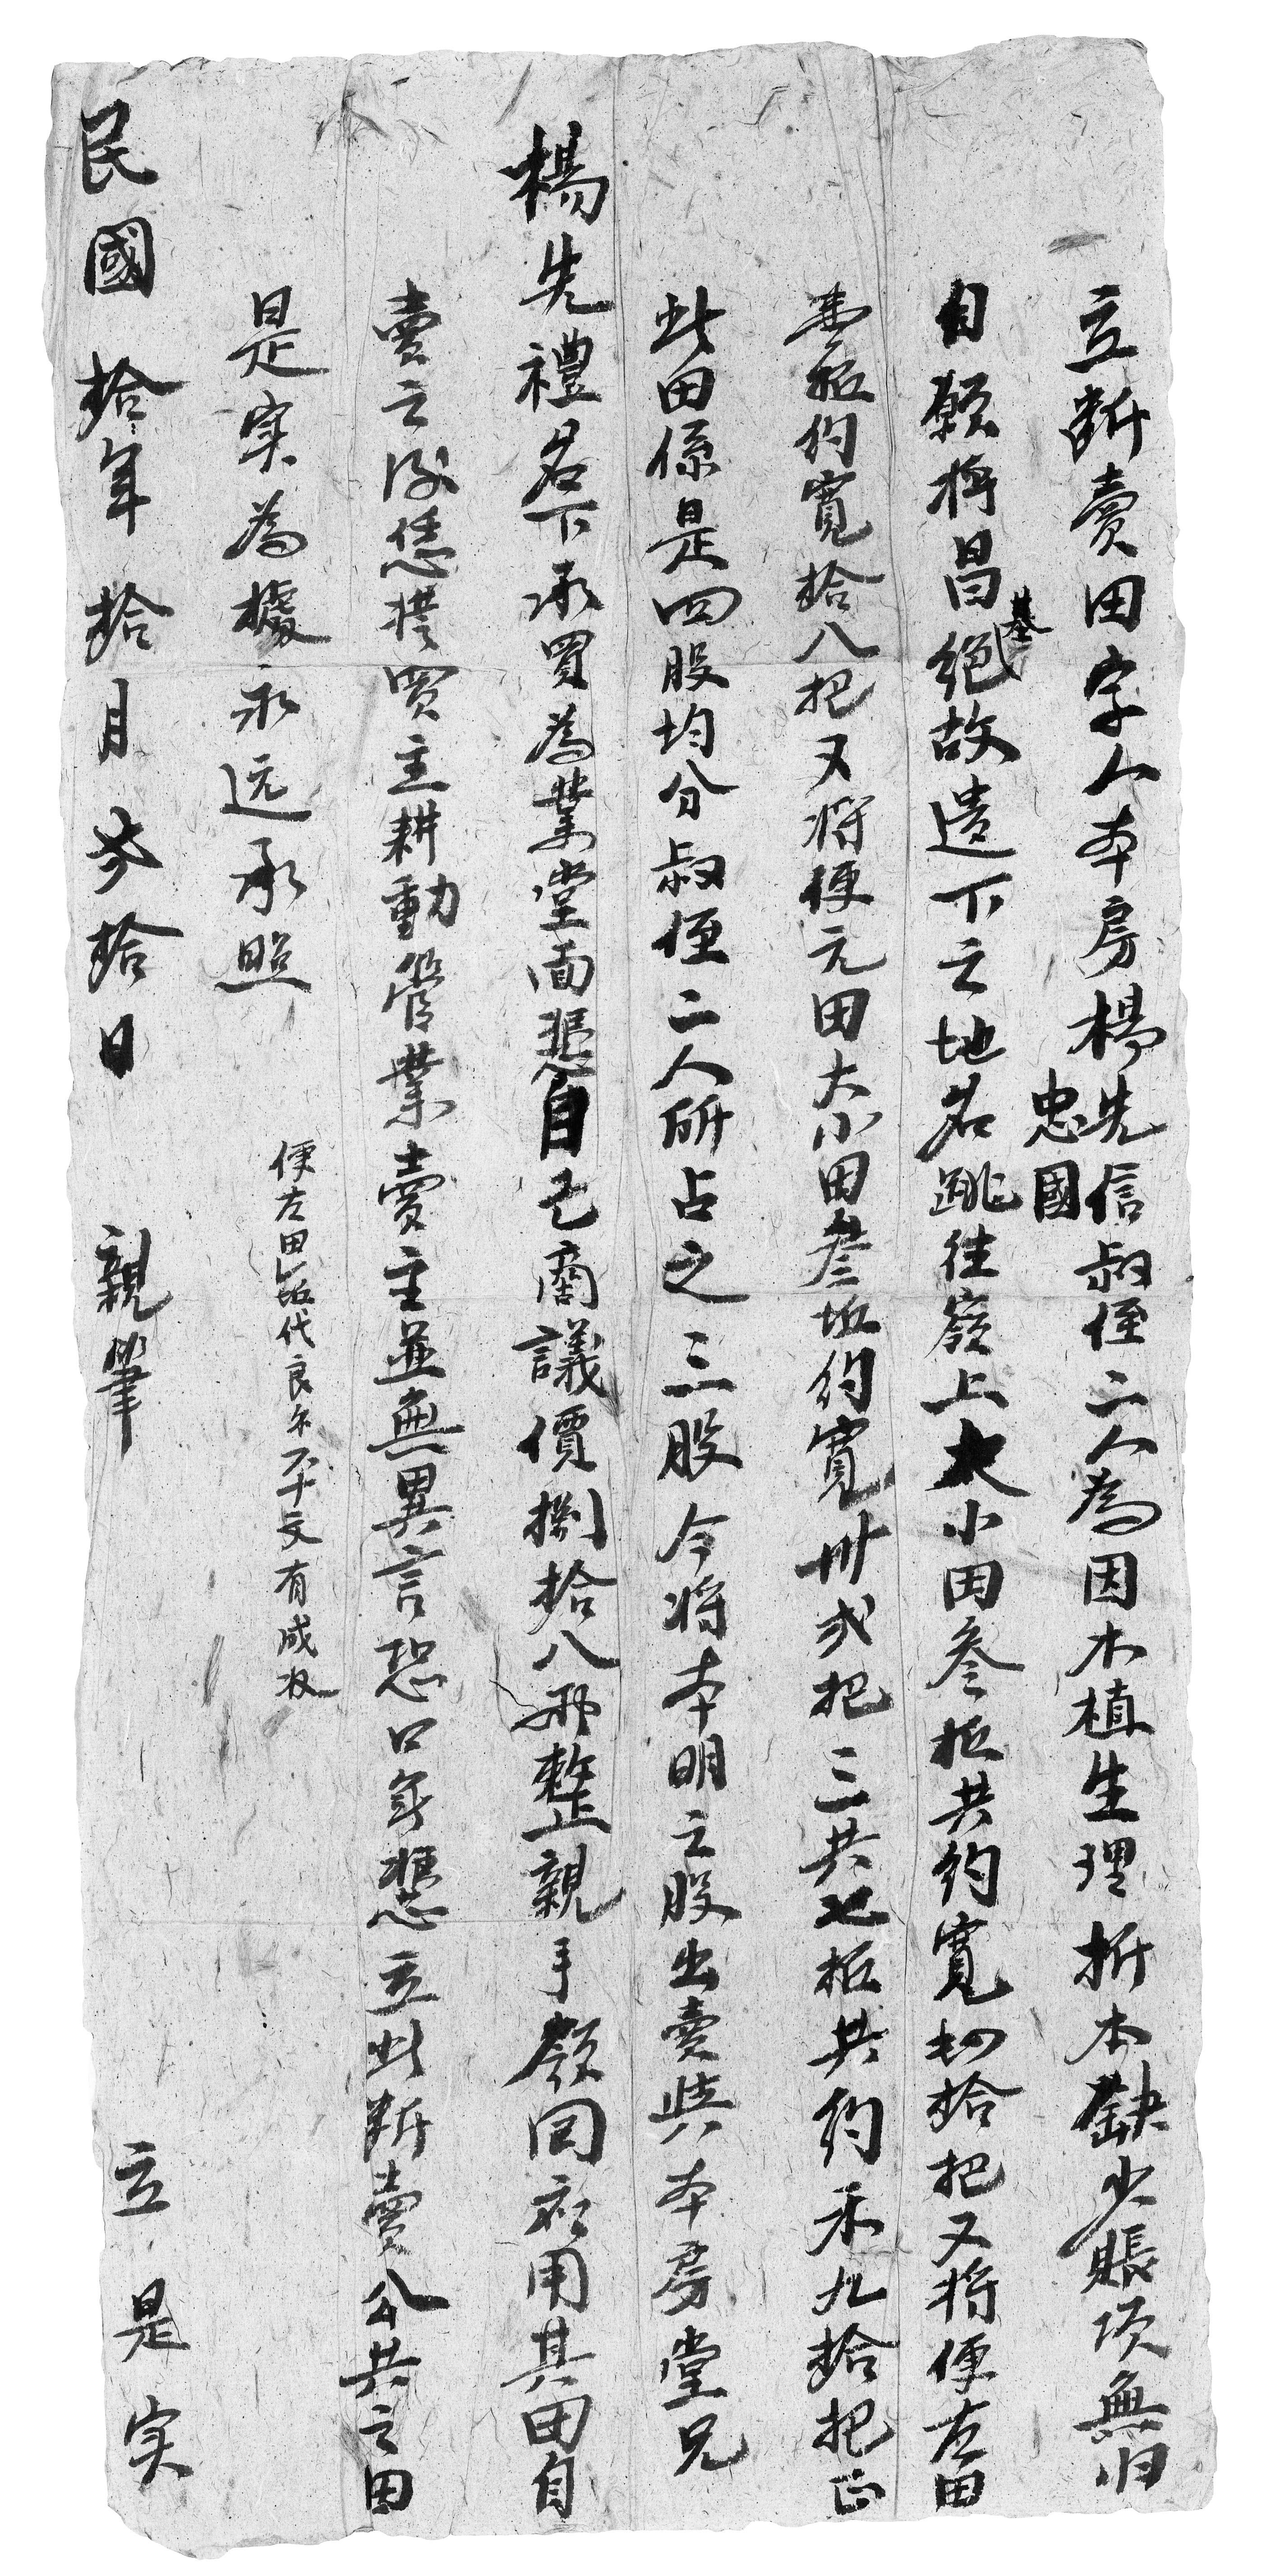 立断賣田字人本房楊先信忠國叔侄二人為因木植生理折本缺少賬項無归
自願將昌基絕故遺下之地名跳往嶺上大小田叁坵共約寬四拾把又將便左田
壹坵約寬拾八把又将便元田大小田叁坵約寬卅弍把三共七坵共約禾九拾把正
此田係是四股均分叔侄二人所占之三股今将本明之股出賣與本房堂兄
楊先禮名下承買為業當面憑自己商議價捌拾八両整親手領囘家用其田自
賣之後恁憑買主耕動管業賣主並無異言恐口無憑立此断賣分共之田
是实為據永远承照
便左田坵代良尔不千文有成収
民國拾年拾月叁拾日 親筆 立是实